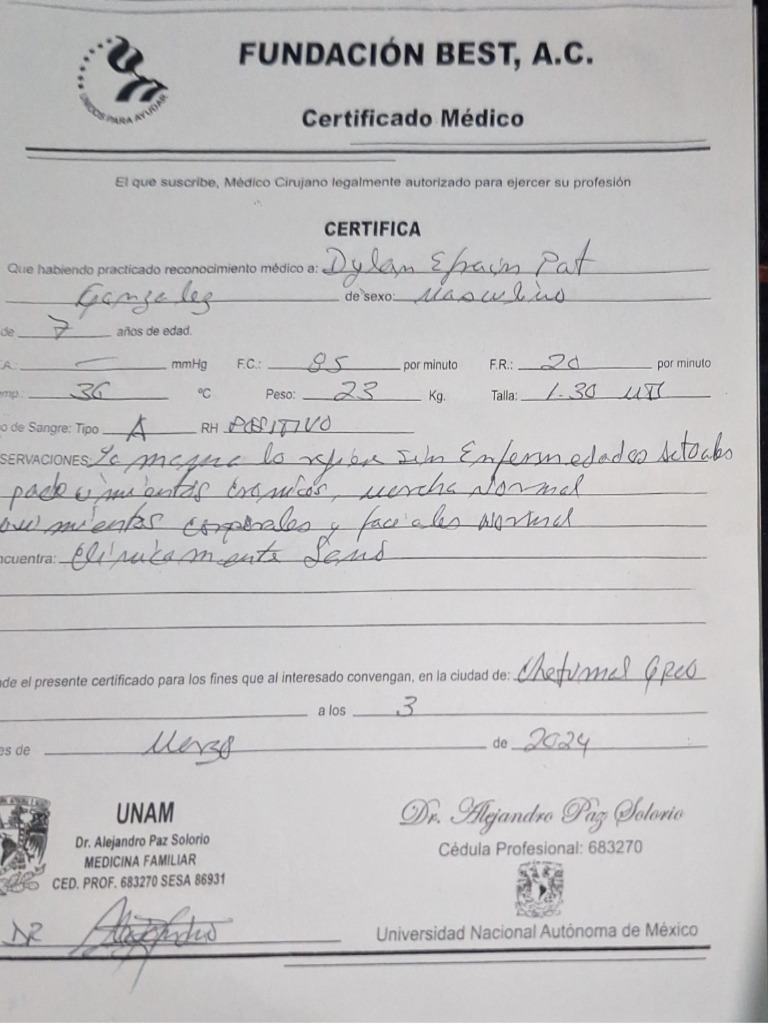 UNIDOS PARA AYUDAR
FUNDACIÓN BEST, A.C.
Certificado Médico
El que suscribe, Médico Cirujano legalmente autorizado para ejercer su profesión
CERTIFICA
Que habiendo practicado reconocimiento médico a: Dylan Efrain Pat
Gonzalez de sexo: Masculino
de 7 años de edad.
A.: — mmHg F.C.: 85 por minuto F.R.: 20 por minuto
mp.: 36 ºC Peso: 23 Kg. Talla: 1.30 MTS
o de Sangre: Tipo A RH POSITIVO
SERVACIONES: La mama lo refiere sin Enfermedades Actuales
padecimientos cronicos, marcha Normal
movimientos corporales y faciales Normal
ncuentra: Clinicamente Sano
nde el presente certificado para los fines que al interesado convengan, en la ciudad de: Chetumal QRoo
a los 3
es de Marzo de 2024
UNAM
Dr. Alejandro Paz Solorio
MEDICINA FAMILIAR
CED. PROF. 683270 SESA 86931
DR
Dr. Alejandro Paz Solorio
Cédula Profesional: 683270
Universidad Nacional Autónoma de México